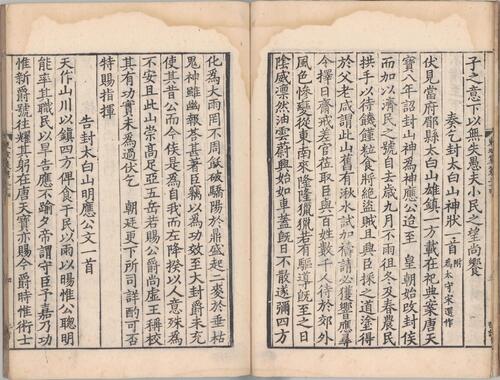 子之意下以無失愚夫小民之望尚饗
奏乞封太白山神狀一首 附 為太守宋選作
伏見當府郿縣太白山雄鎮一方載在祀典案唐天
寶八年詔封山神為神應公迨至 皇朝始改封侯
而加以濟民之號自去歲九月不雨徂冬及春農民
拱手以待饑饉粒食將絕盜賊且興臣採之道塗得
於父老咸謂此山舊有湫水試加禱請必獲響應尋
令擇日齋戒差官莅取臣與百姓數千人待於郊外
風色慘變從東南來隆隆獵獵若有驅導既至之日
陰威凜然油雲蔚興始如車蓋既日不散遂彌四方
化為大雨罔不周飫破驕陽於鼎盛起二麥於垂枯
鬼神雖幽報荅甚著臣竊以為功效至大封爵未充
使其昔公而今侯是為自我而左降揆以人意殊為
不安且此山崇高足亞五岳若賜公爵尚虛王稱校
其有功實未為過伏乞 朝廷更下所司詳酌可否
特賜指揮
告封太白山明應公文一首
天作山川以鎮四方俾食于民以雨以暘惟公聰明
能率其職民以旱告應不踰夕帝謂守臣予嘉乃功
惟新爵號往耀其躬在唐天寶亦賜今爵時惟術士